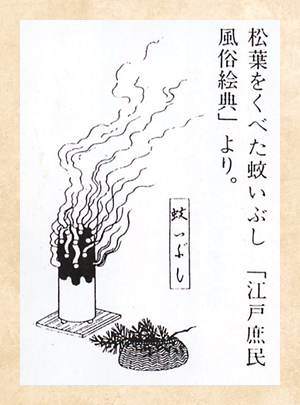 松葉をくべた蚊いぶし　「江戸庶民
風俗絵典」より。
蚊いぶし